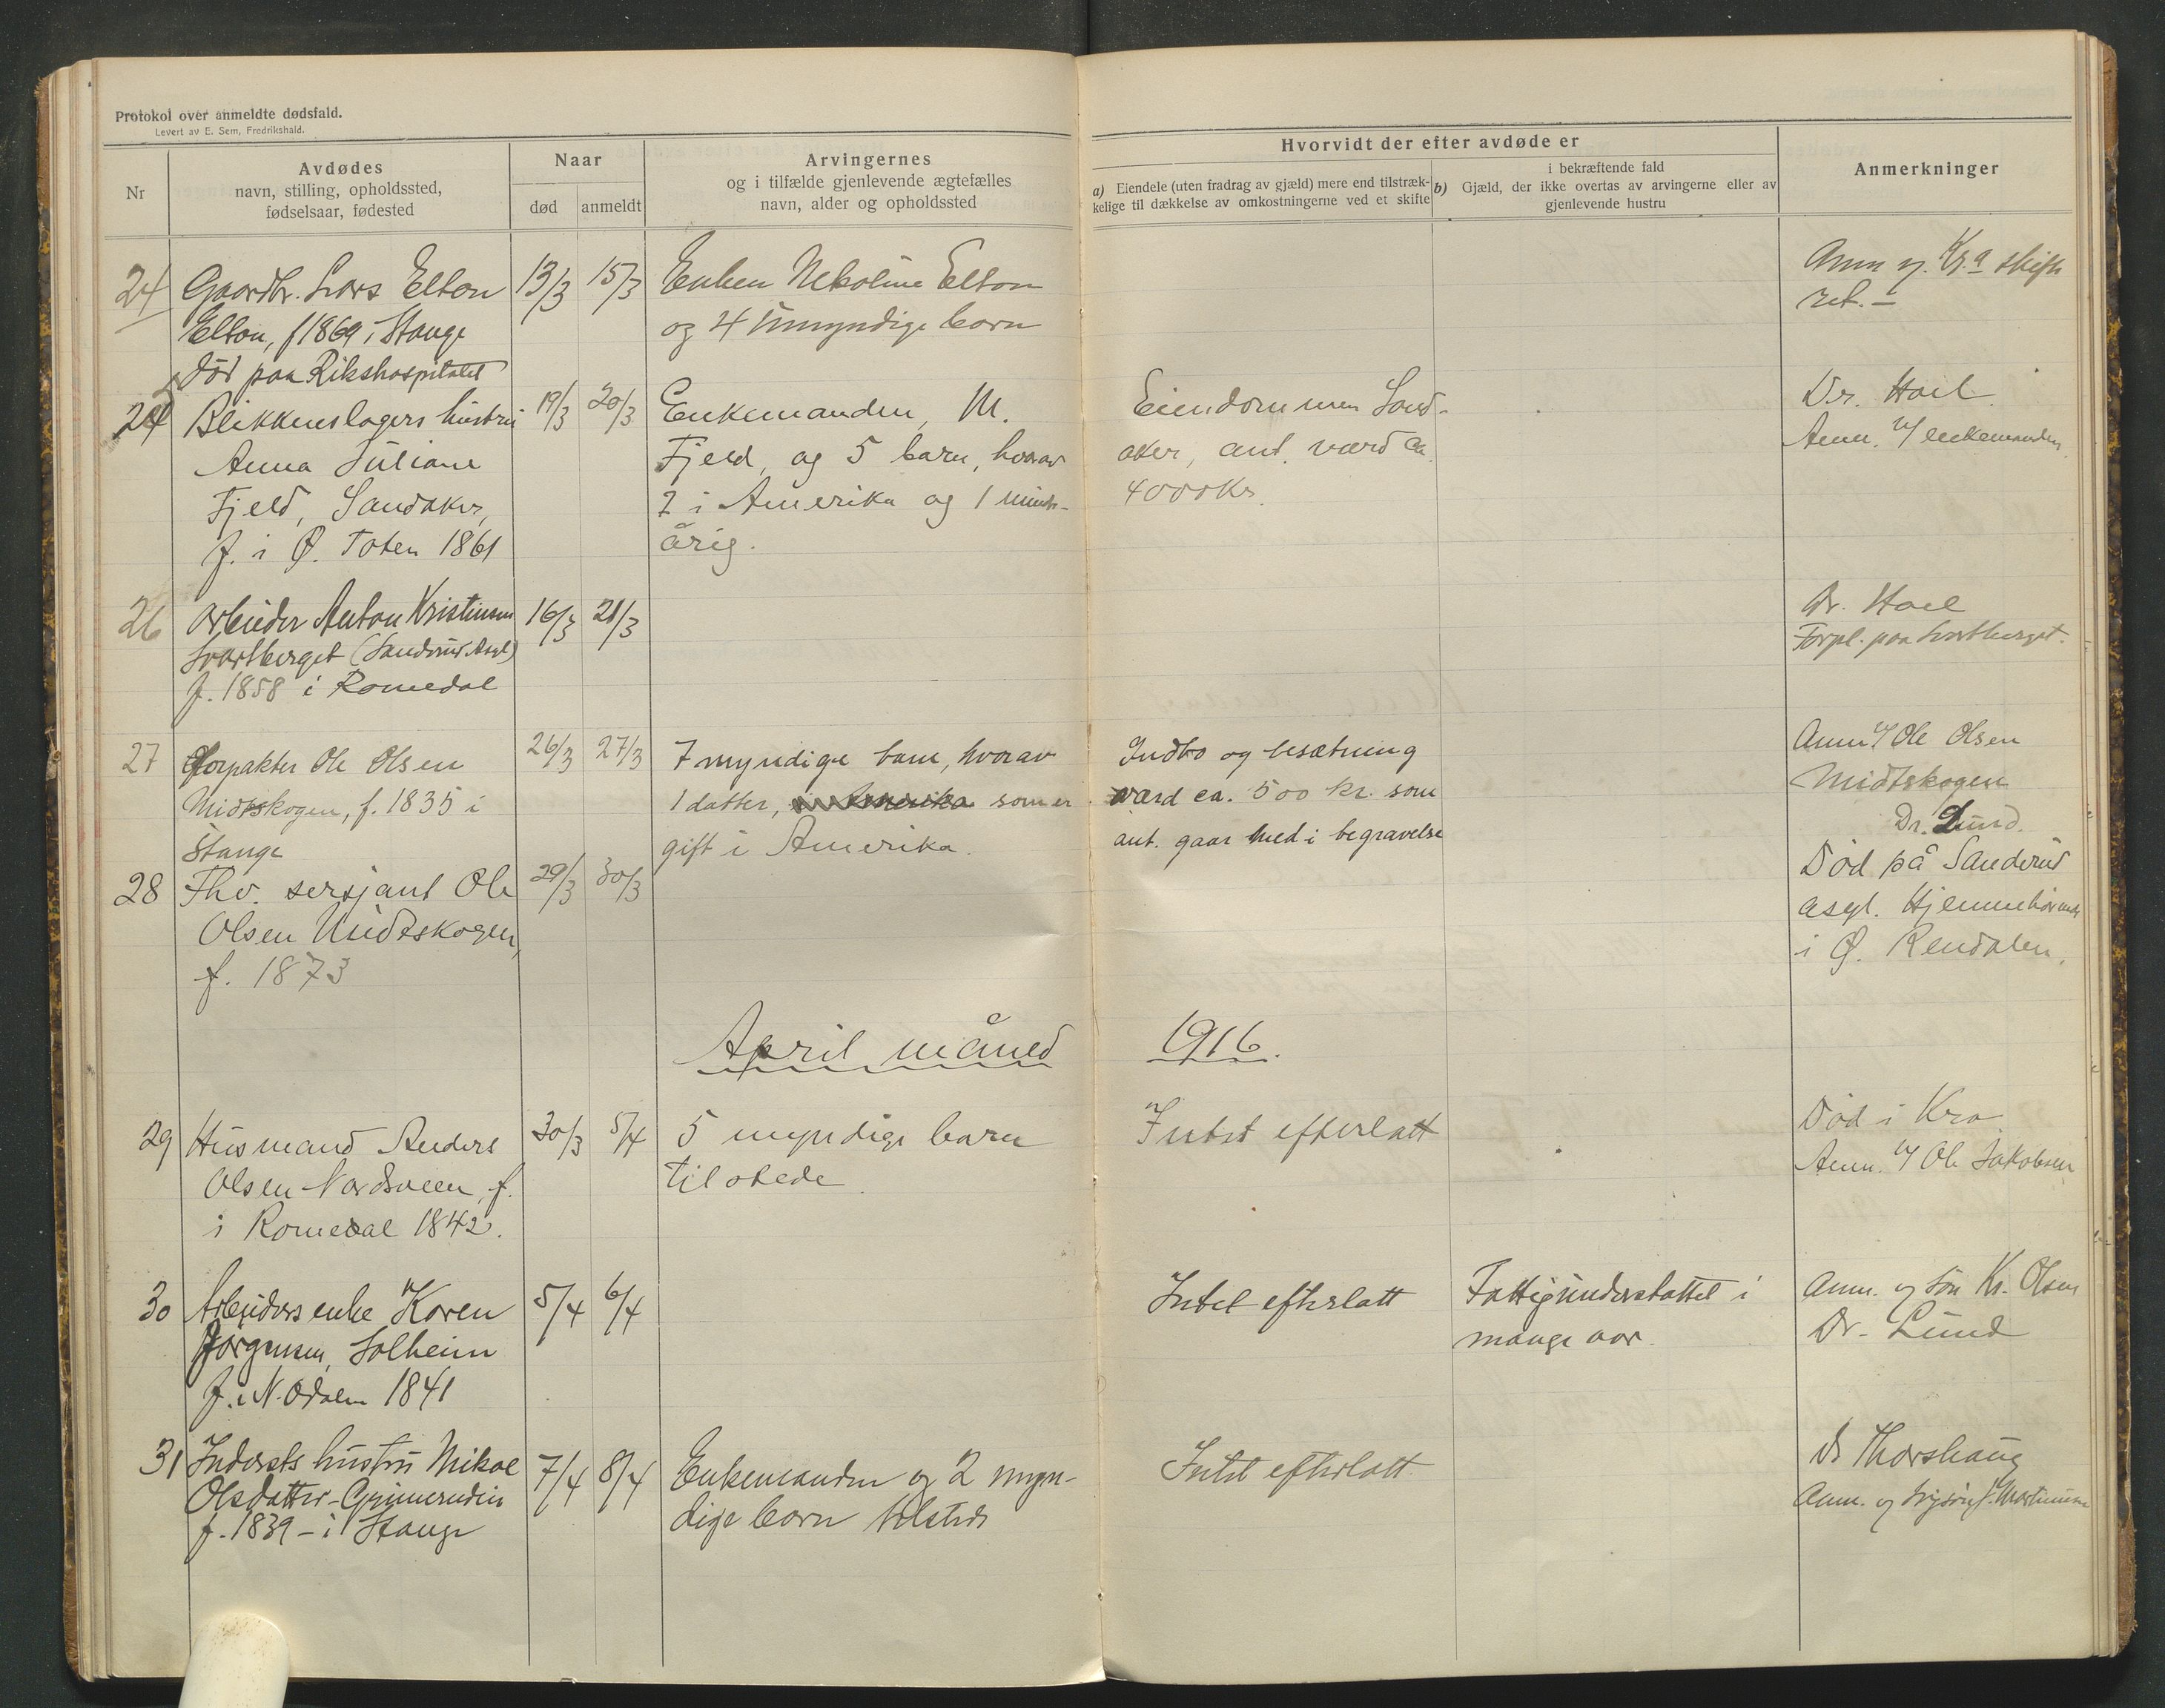 Protokol over anmeldte dødsfald.
Levert av E. Sem, Fredrikshald.
Nr
Avdødes
navn, stilling, opholdssted,
fødselsaar, fødested
Naar
død
anmeldt
Arvingernes
og i tilfælde gjenlevende ægtefælles
navn, alder og opholdssted
Hvorvidt der efter avdøde er
a) Eiendele (uten fradrag av gjæld) mere end tilstræk-
kelige til dækkelse av omkostningerne ved et skifte
i bekræftende fald
b) Gjæld, der ikke overtas av arvingerne eller av
gjenlevende hustru
Anmerkninger
24
Gaardbr. Lars Elton
Elton, f 1869 i Stange
død paa Rikshospitalet
13/3
15/3
Enken Nekoline Elton
og 4 umyndige barn
Anm v. Kr.a skifte
ret. –
Blikkenslagers hustru
Anna Juliane
Fjeld, Sandaker,
f. i Ø. Toten 1861
19/3
20/3
Enkemanden, M.
Fjeld, og 5 barn, hvorav
2 i Amerika og 1 mindre-
årig.
Eiendommen Sand-
aker, ant. værd ca.
4000 Kr.
Dr. Hoel
Anm. v/ enkemanden
26
Arbeider Anton Kristiansen
Svartberget (Sanderud Asyl)
f. 1858 i Romedal
16/3
21/3
Dr. Hoel
Forpl. paa Svartberget.
27
Forpakter Ole Olsen
Midtskogen, f. 1835 i
Stange
26/3
27/3
7 myndige barn, hvorav
1 datter, i Amerika som er
gift i Amerika.
Indbo og besætning
værd ca. 500 kr. som
ant. gaar med i begravelse
Anm v/ Ole Olsen
Midtskogen
Dr. Lund.
28
Fhv. sersjant Ole
Olsen Midtskogen,
f. 1873
29/3
30/3
Død på Sanderud
asyl. Hjemmehørende
i Ø. Rendalen.
April måned 1916.
29
Husmand Anders
Olsen Nordsveen, f.
i Romedal 1842.
30/3
5/4
5 myndige barn
tilstede
Intet efterlatt
Død i Kra
Anm. v/ Ole Jakobsen
30
Arbeiders enke Karen
Jørgensen, Solheim
f. i N. Odalen 1841
5/4
6/4
Intet efterlatt
Fattigunderstøttet i
mange aar.
Anm. av søn Kr. Olsen
Dr. Lund
31
Indersts hustru Mikal
Olsdatter
f. 1839 – i Stange
7/4
8/4
Enkemanden og 2 myn-
dige barn tilstede
Intet efterlatt
Dr Thorshaug
Anm. av